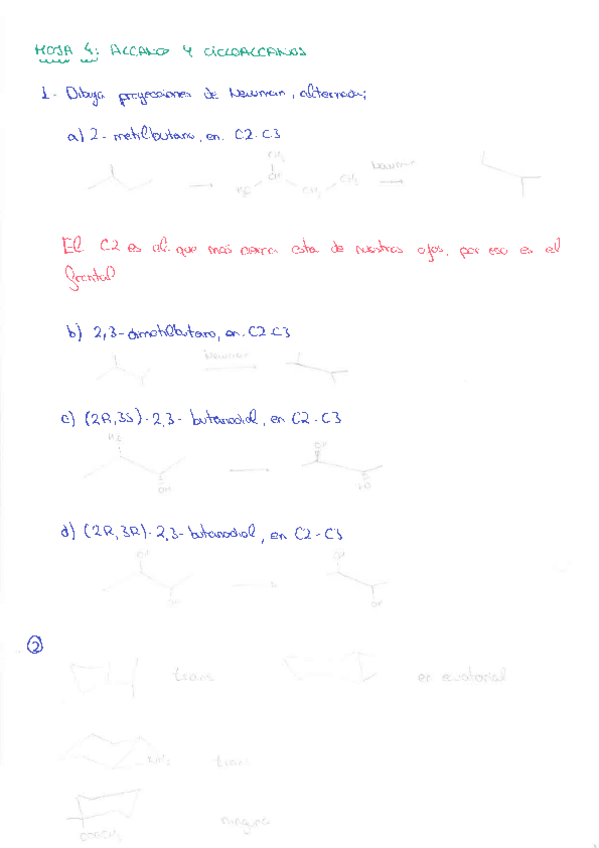 HOJA 4: ALCANO Y CICLOALCANOS
1- Dibuja proyecciones de Newman, alternada;
a) 2-metilbutano, en C2-C3
CH3
CH
CH2
CH3
Newman
El C2 es el que más cerca esta de nuestros ojos, por eso es el
frontal
b) 2,3-dimetilbutano, en C2-C3
Newman
c) (2R,3S)-2,3-butanodiol, en C2-C3
OH
OH
d) (2R,3R)-2,3-butanodiol, en C2-C3
OH
OH
OH
OH
2
trans
en ecuatorial
trans
ninguna